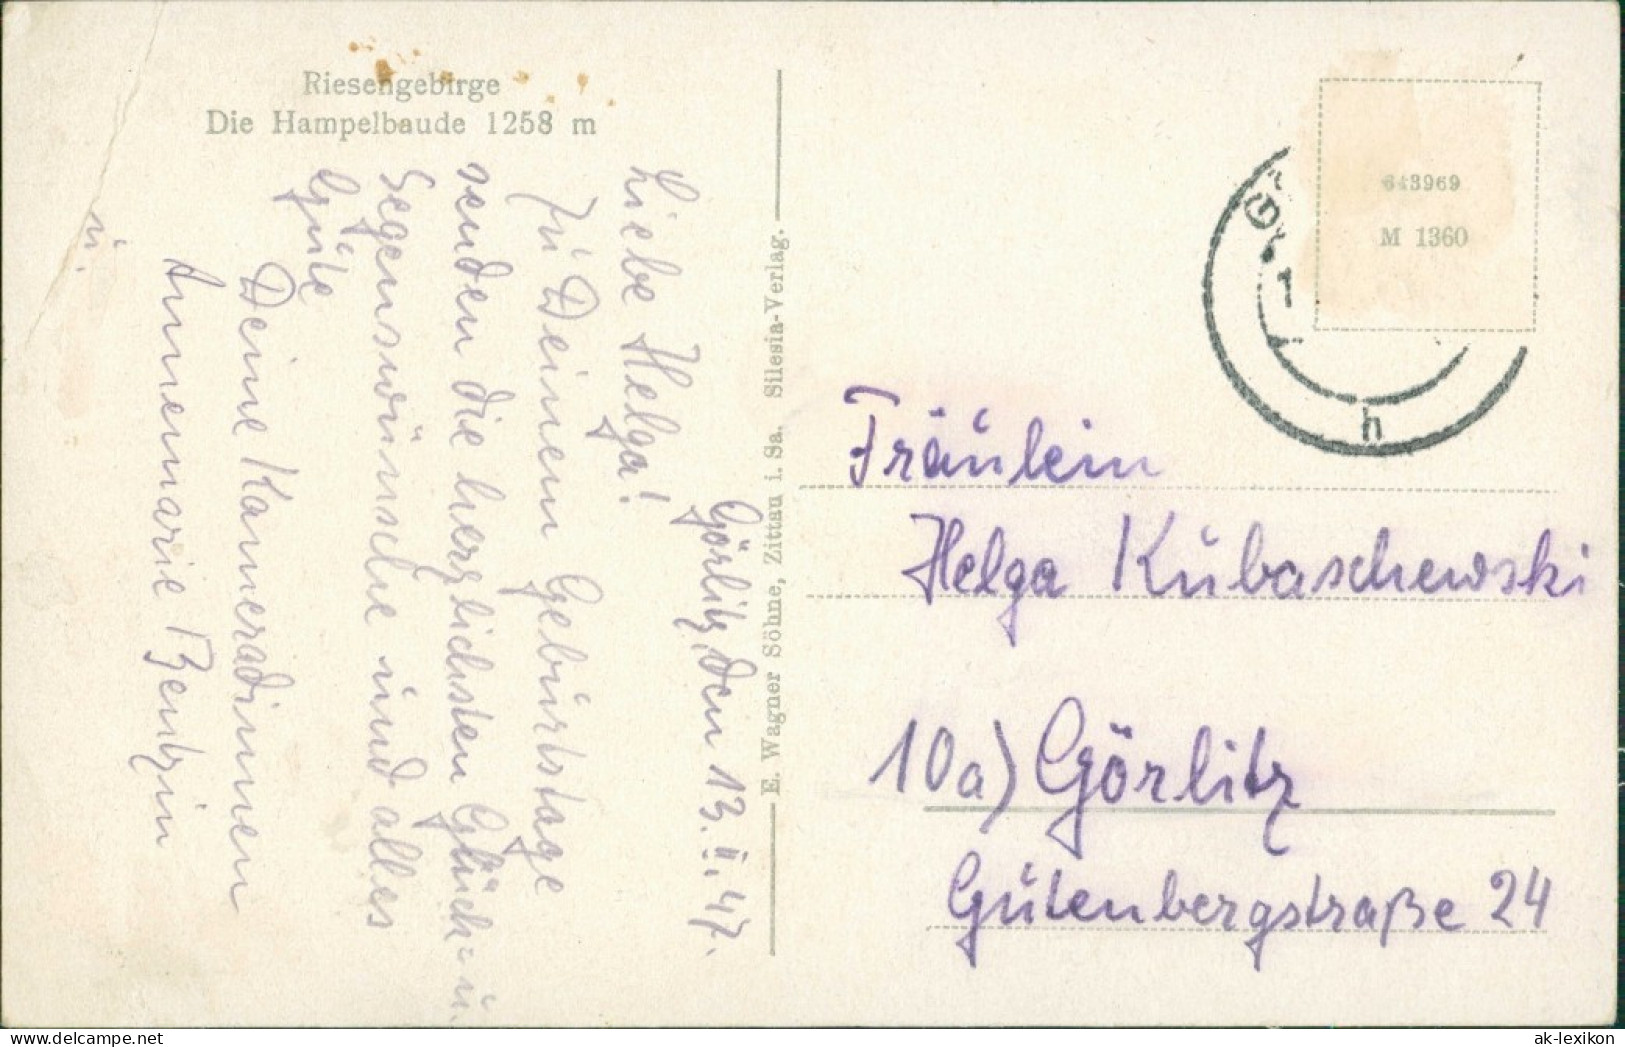 Riesengebirge
Die Hampelbaude 1258 m
Görlitz, den 13. II. 47.
Liebe Helga!
Zu Deinem Geburtstage
senden die herzlichsten Glück= u.
Segenswünsche und alles
Gute
Deine Kameradinnen
u.
Annemarie Bentzin
E. Wagner Söhne, Zittau i. Sa. Silesia-Verlag.
643969
M 1360
G
1
h
Fräulein
Helga Kubaschewski
10a) Görlitz
Gutenbergstraße 24
ak-lexikon